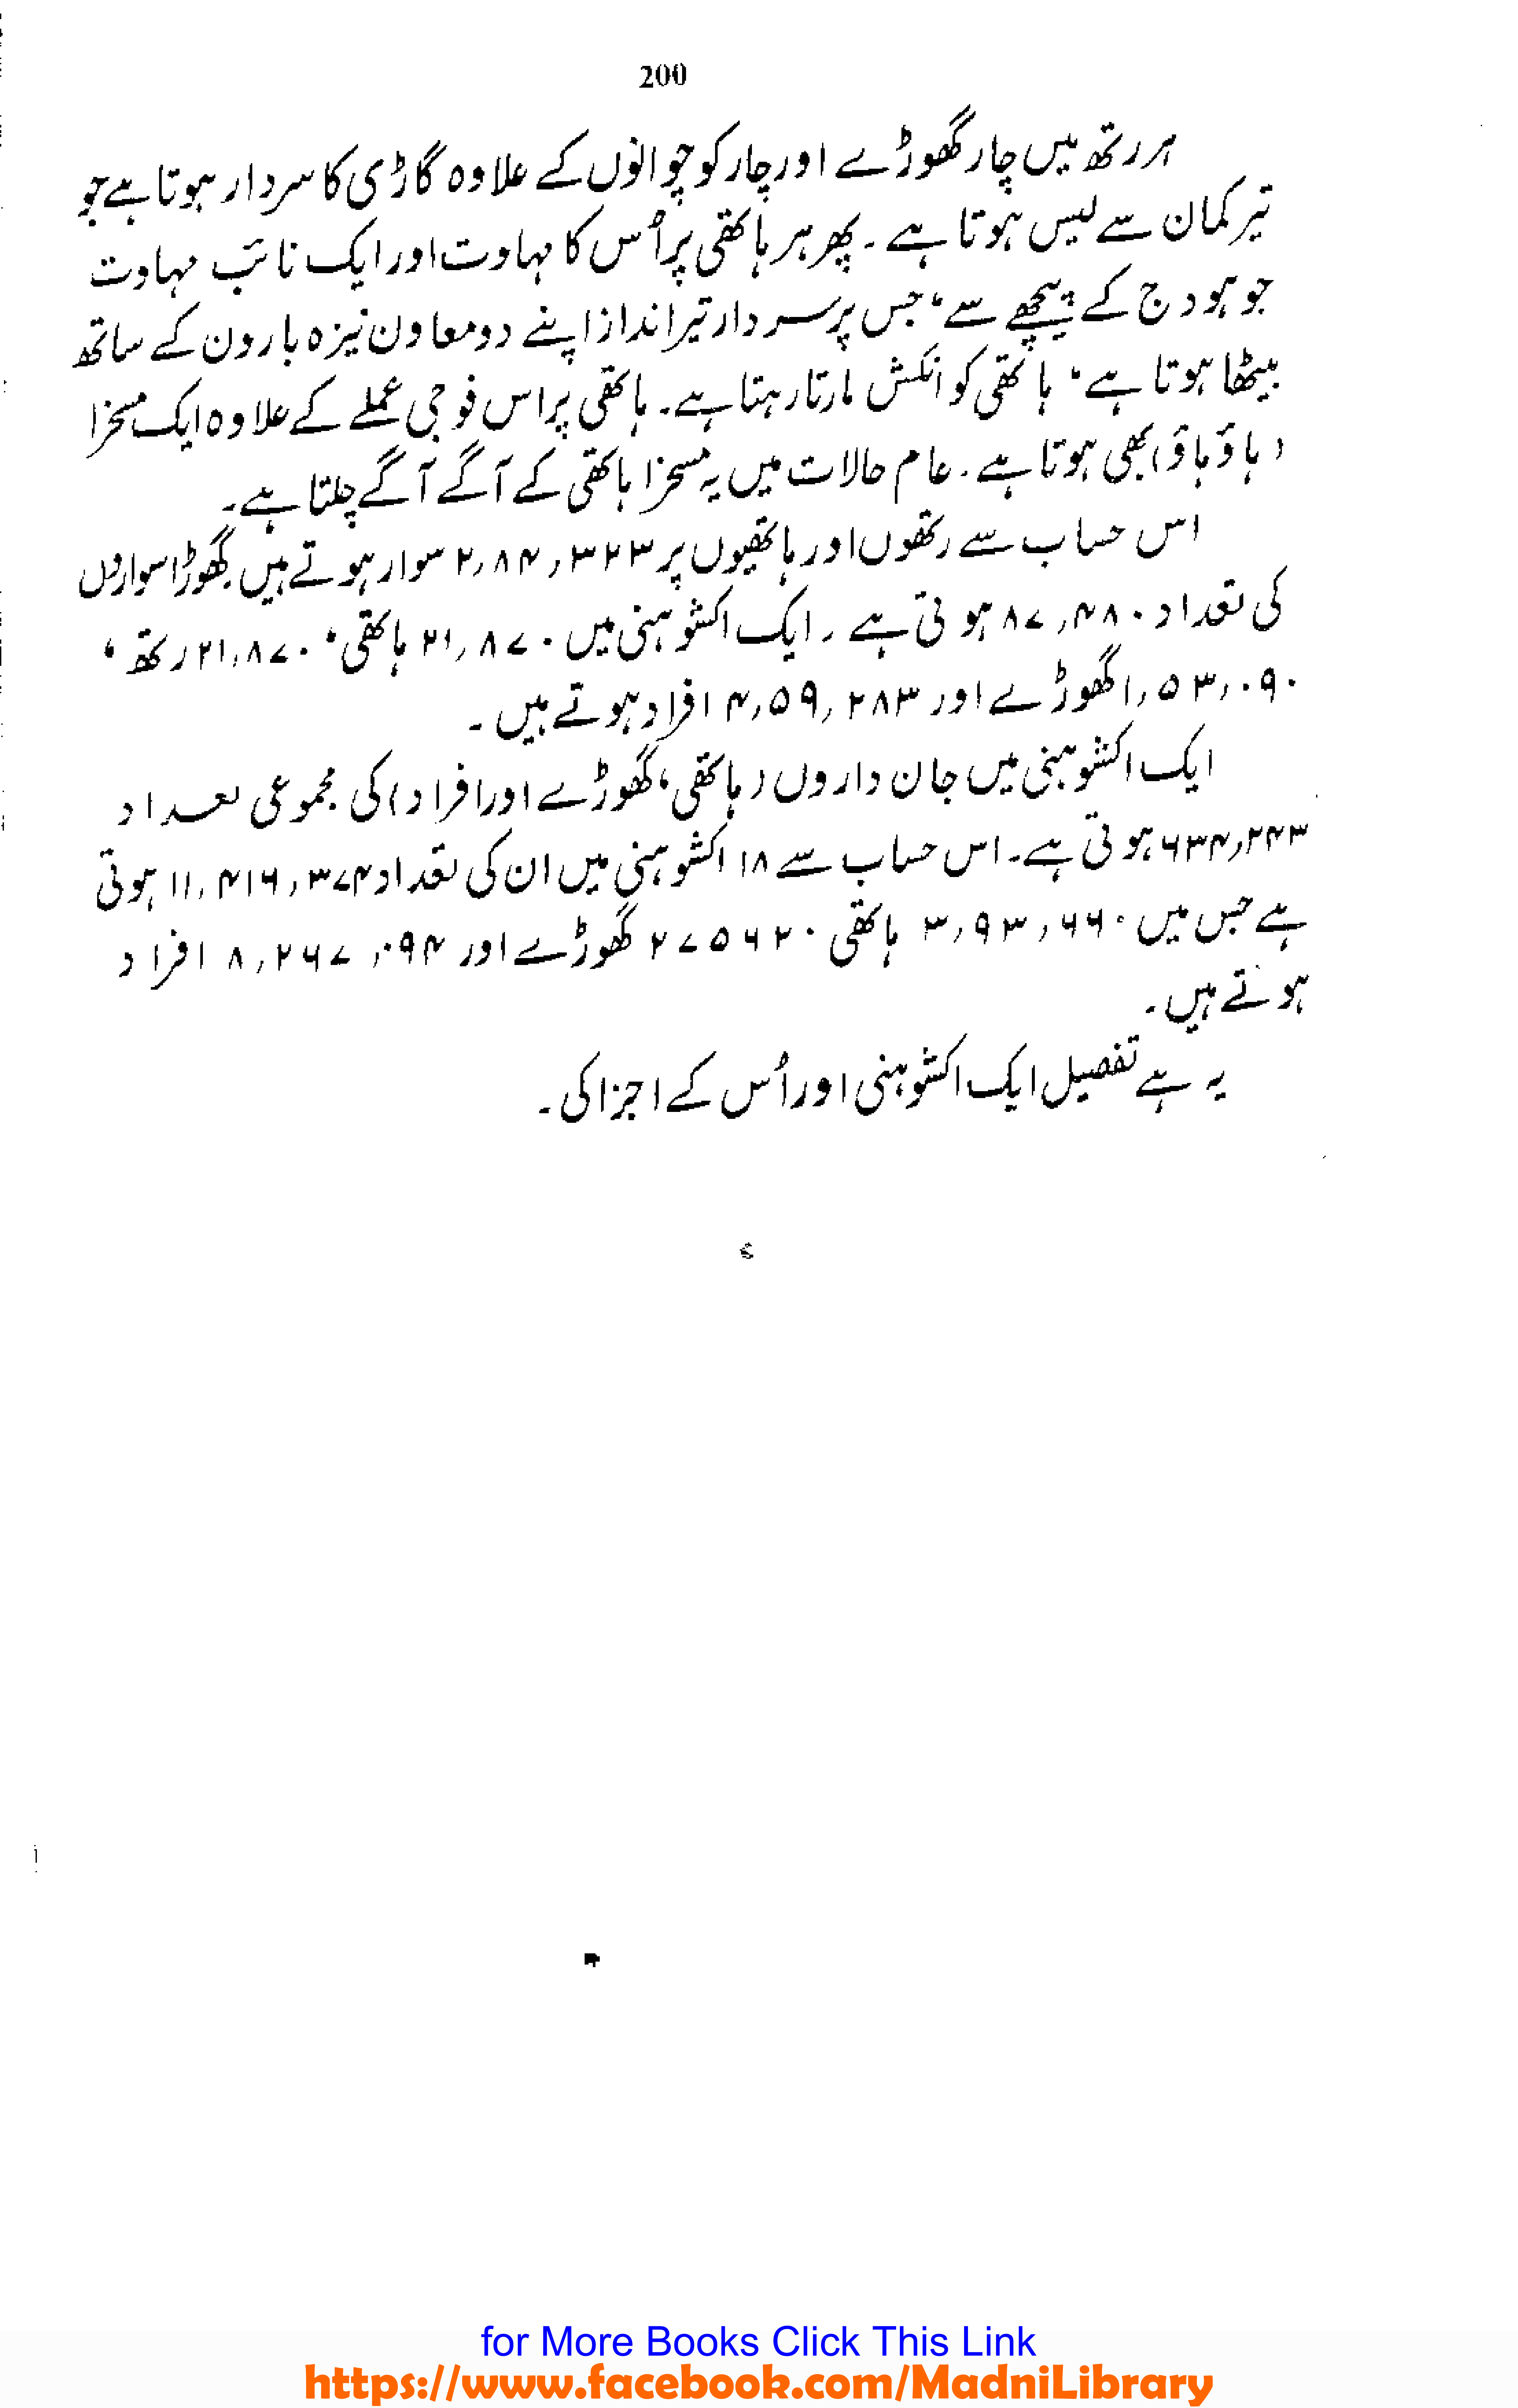 200
ہر رتھ میں چار گھوڑے اور چار کوچوانوں کے علاوہ گاڑی کا سردار ہوتا ہے جو
تیر کمان سے لیس ہوتا ہے ۔ پھر ہر ہاتھی پر اُس کا مہاوت اور ایک نائب مہاوت
جو ہودج کے پیچھے سے، جس پر سردار تیر انداز اپنے دو معاون نیزہ بارون کے ساتھ
بیٹھا ہوتا ہے، ہاتھی کو انکش مارتا رہتا ہے۔ ہاتھی پر اس فوجی عملے کے علاوہ ایک مسخرا
(ہاؤ ہاؤ) بھی ہوتا ہے ۔ عام حالات میں یہ مسخرا ہاتھی کے آگے آگے چلتا ہے۔
اس حساب سے رتھوں اور ہاتھیوں پر ۲,۸۴,۳۲۳ سوار ہوتے ہیں۔ گھوڑا سواروں
کی تعداد ۸۷,۴۸۰ ہوتی ہے ۔ ایک اکشوہنی میں ۲۱,۸۷۰ ہاتھی، ۲۱,۸۷۰ رتھ،
۱,۵۳,۰۹۰ گھوڑے اور ۴,۵۹,۲۸۳ افراد ہوتے ہیں ۔
ایک اکشوہنی میں جان داروں (ہاتھی، گھوڑے اور افراد) کی مجموعی تعداد
۶۳۴,۲۴۳ ہوتی ہے۔ اس حساب سے ۱۸ اکشوہنی میں ان کی تعداد ۱۱,۴۱۶,۳۷۴ ہوتی
ہے جس میں ۳,۹۳,۶۶۰ ہاتھی ۲۷۵۶۲۰ گھوڑے اور ۸,۲۶۷,۰۹۴ افراد
ہوتے ہیں ۔
یہ ہے تفصیل ایک اکشوہنی اور اُس کے اجزا کی ۔
for More Books Click This Link
https://www.facebook.com/MadniLibrary